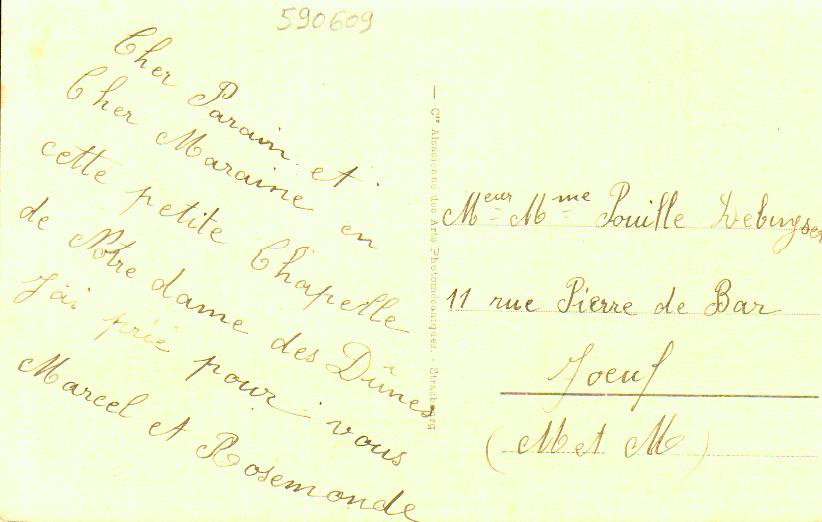 590609
Cher Parain et
Cher Maraine en
cette petite Chapelle
de Nôtre dame des Dûnes
J'ai prié pour vous
Marcel et Rosemonde
— Cie Alsacienne des Arts Photomécaniques. - Strasbourg
Meur Mme Pouille Debuyser
11 rue Pierre de Bar
Joeuf
(M et M)